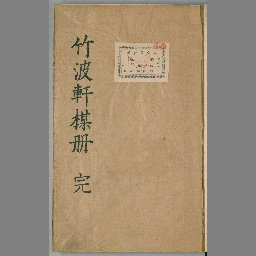 竹波軒楳册 完